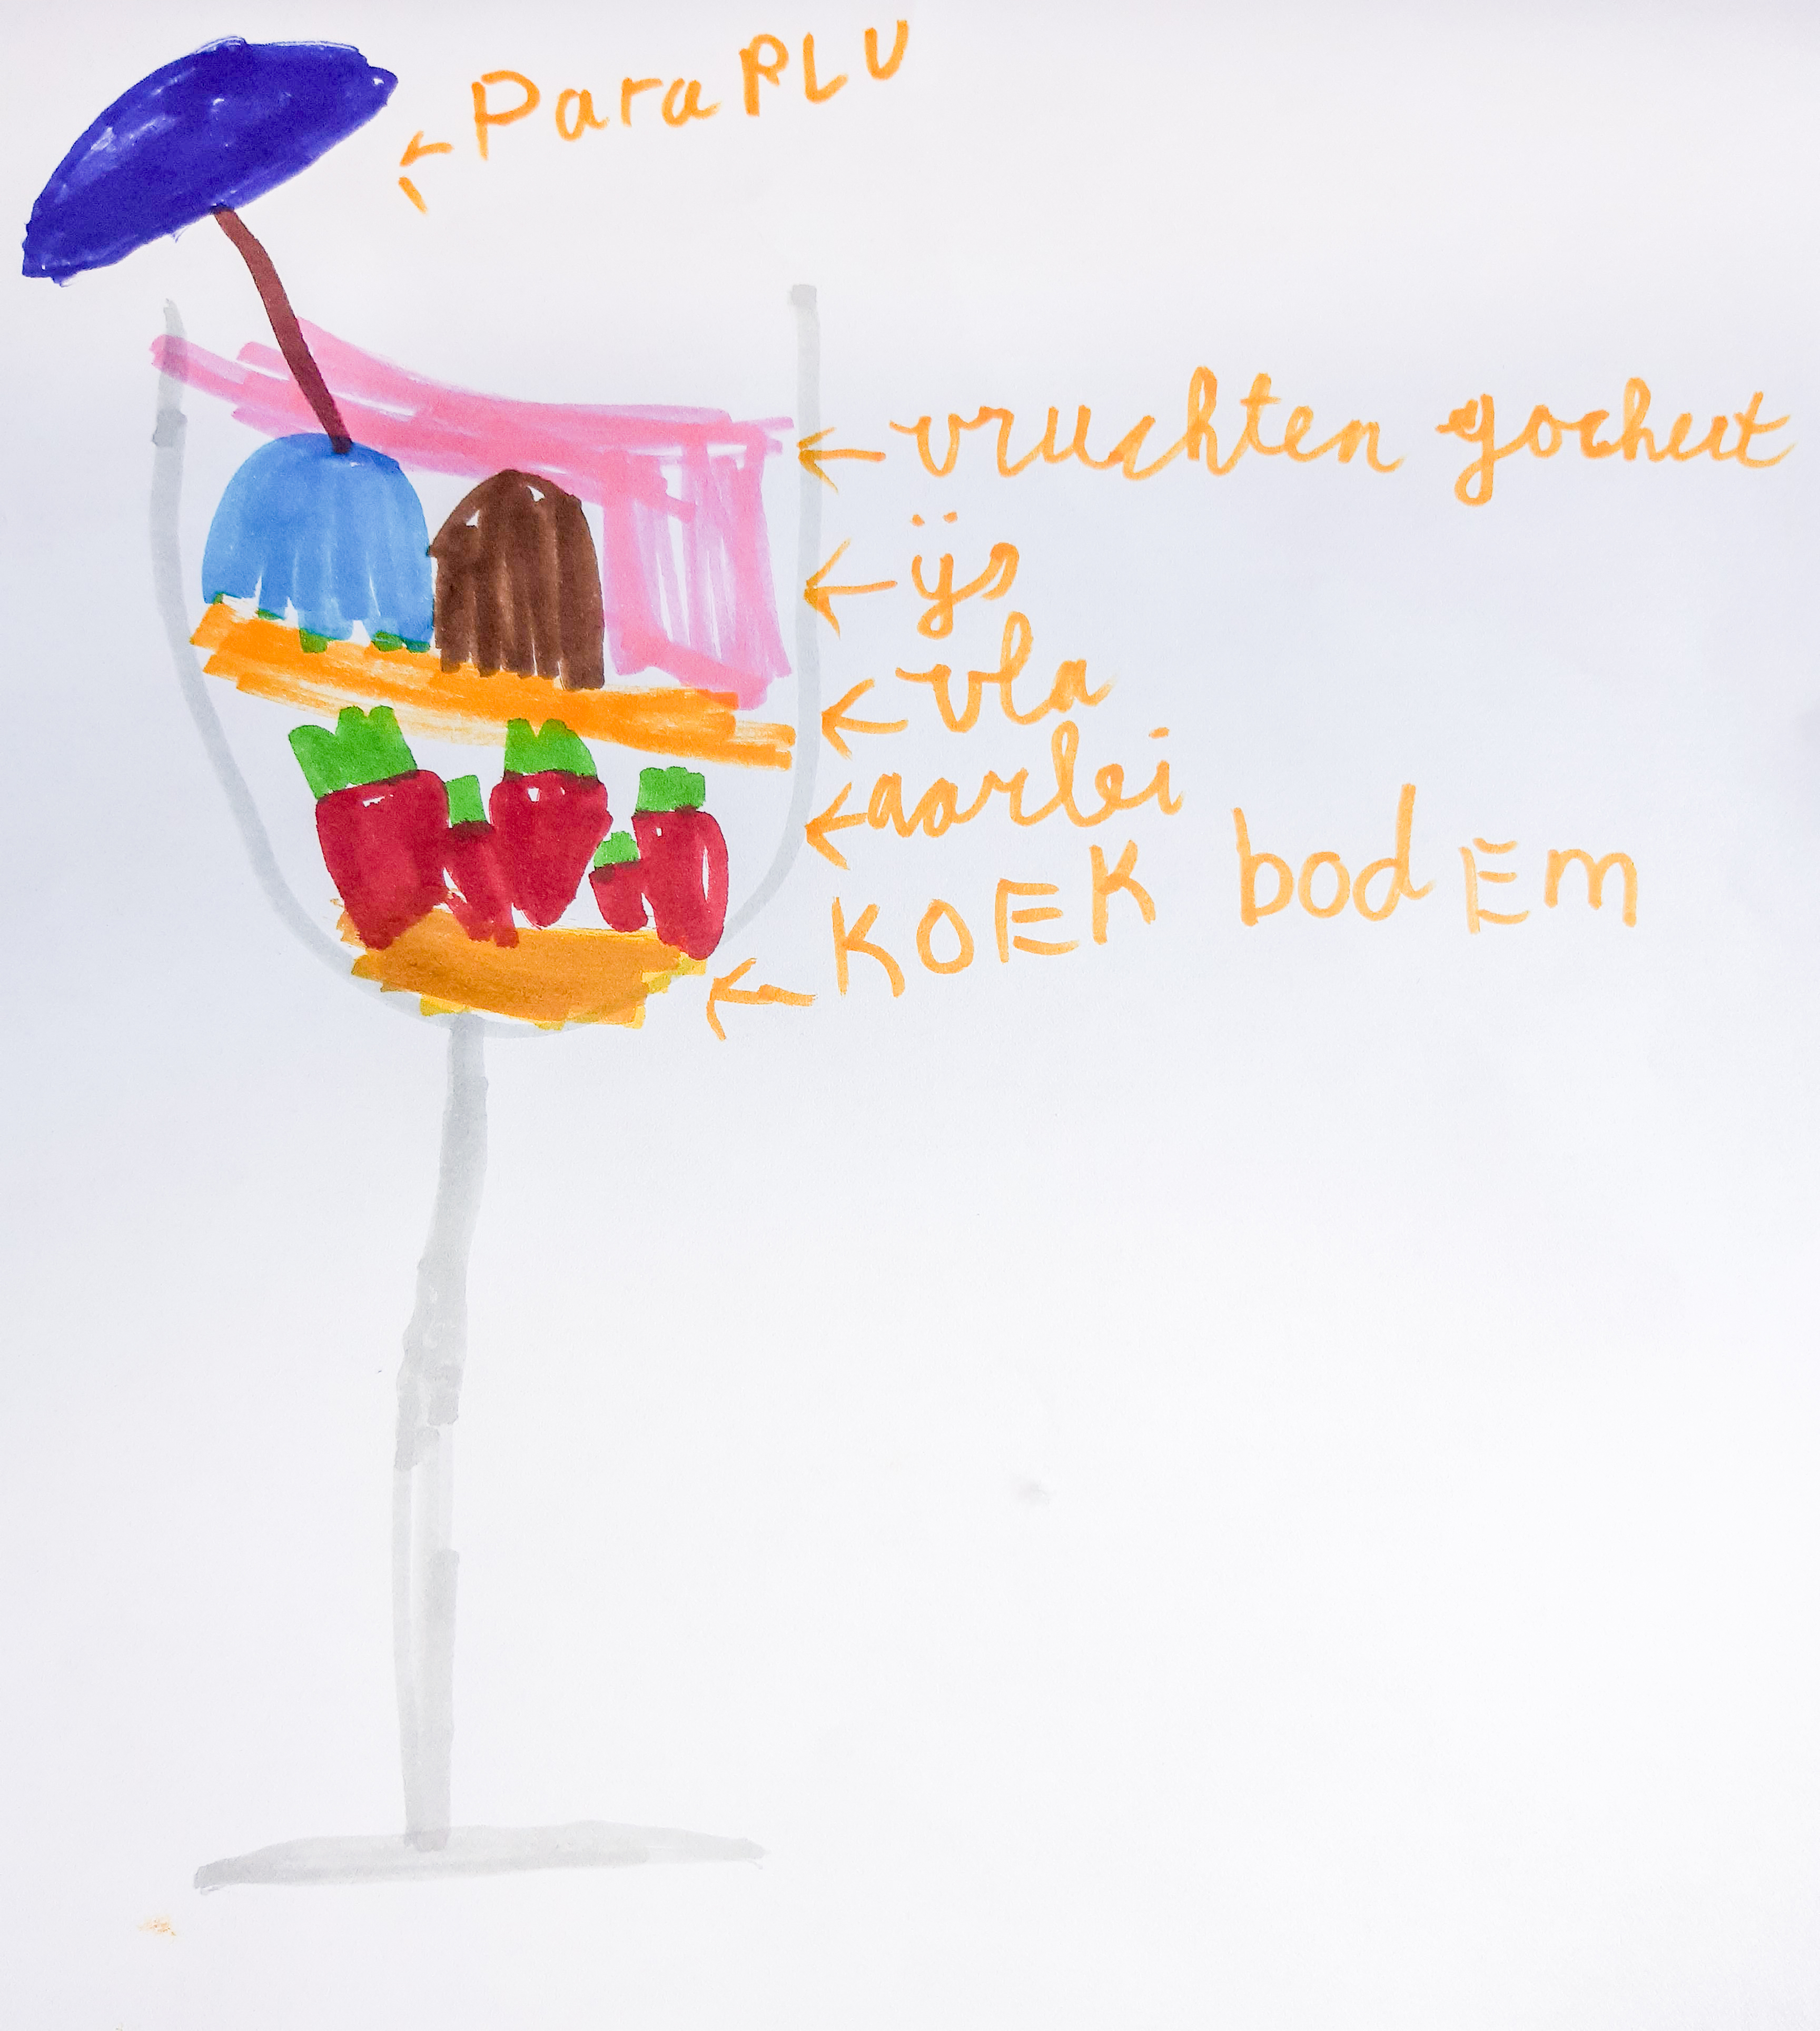 ParaPLU
vruchten gochurt
ijs
vla
aarlei
KOEK bodEm